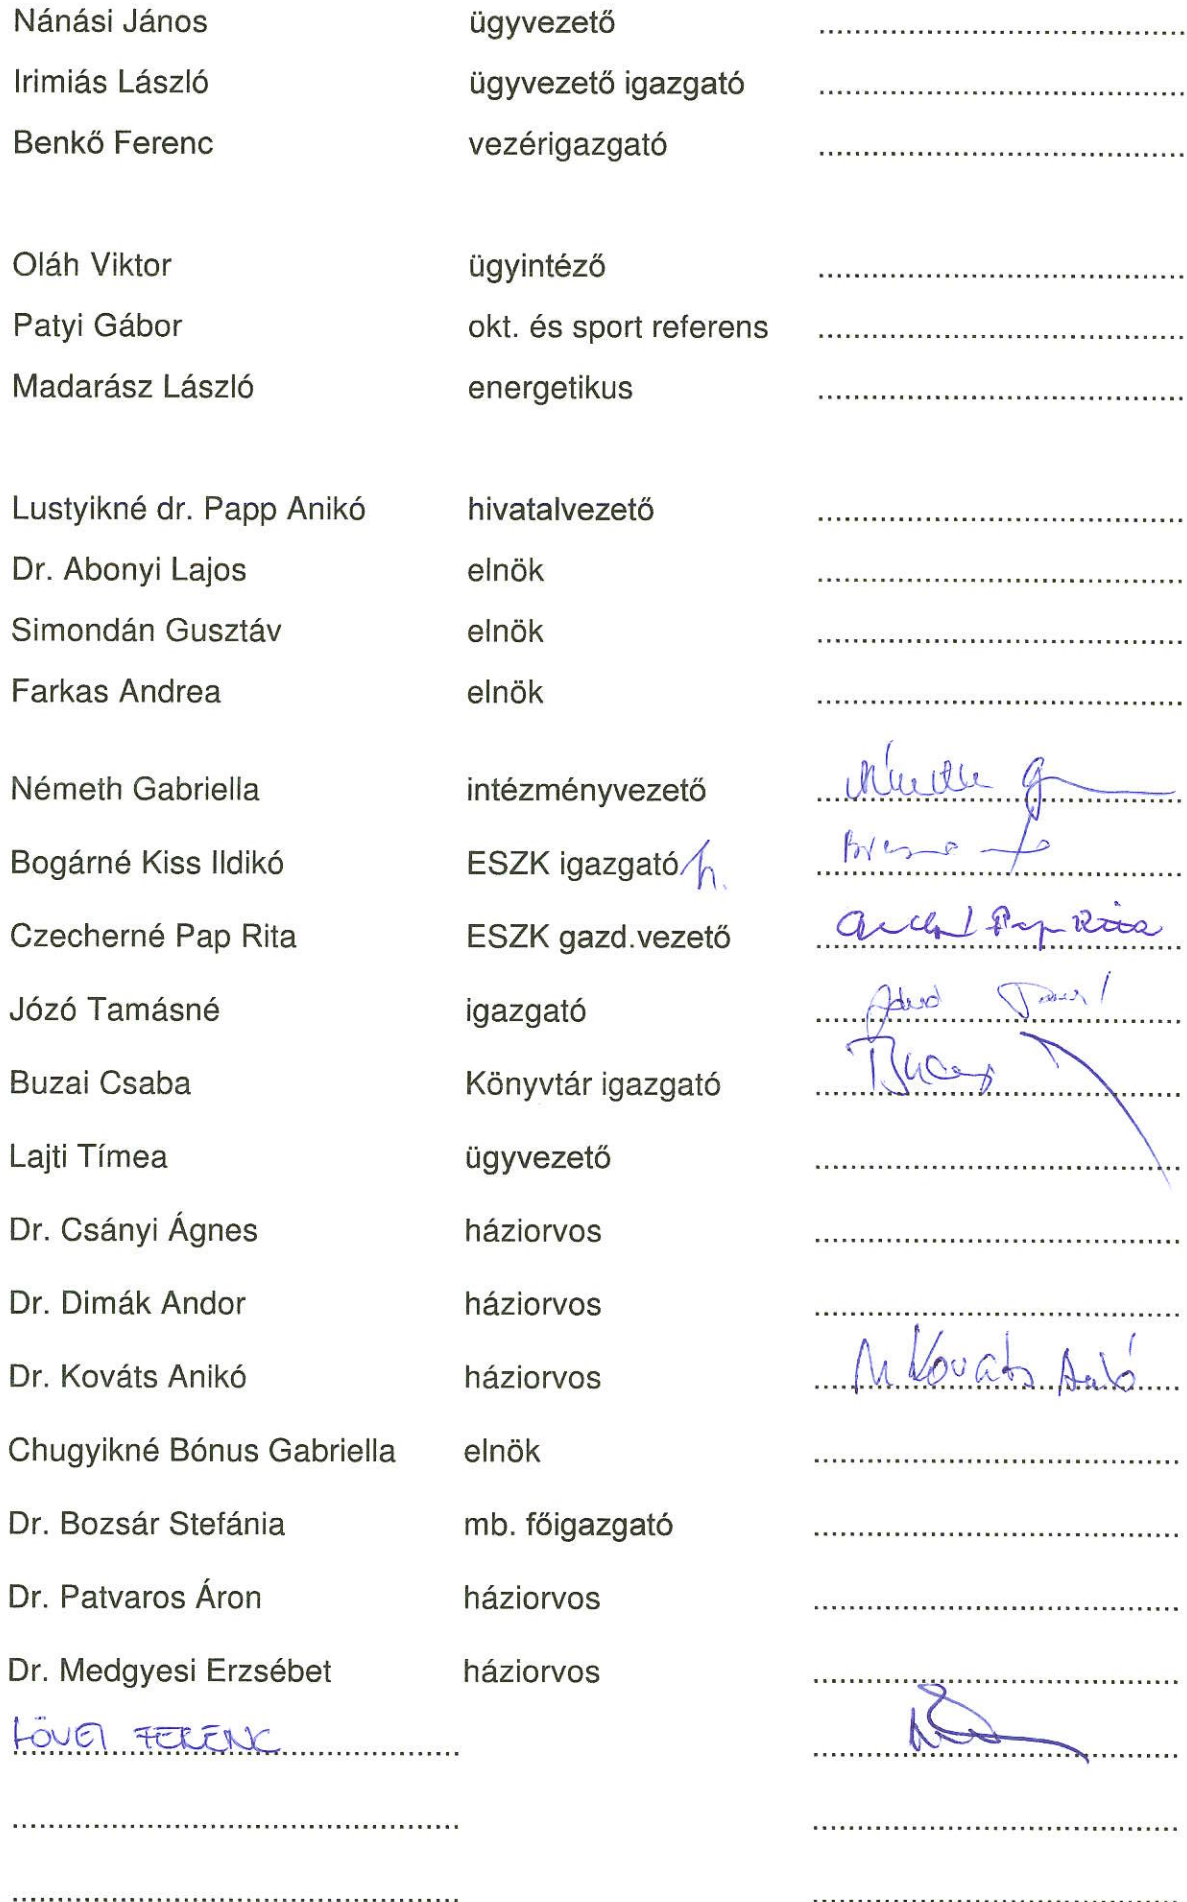 Nánási János ügyvezető ........................................
Irimiás László ügyvezető igazgató ........................................
Benkő Ferenc vezérigazgató ........................................
Oláh Viktor ügyintéző ........................................
Patyi Gábor okt. és sport referens ........................................
Madarász László energetikus ........................................
Lustyikné dr. Papp Anikó hivatalvezető ........................................
Dr. Abonyi Lajos elnök ........................................
Simondán Gusztáv elnök ........................................
Farkas Andrea elnök ........................................
Németh Gabriella intézményvezető
Bogárné Kiss Ildikó ESZK igazgató h.
Czecherné Pap Rita ESZK gazd.vezető Pap Rita
Józó Tamásné igazgató
Buzai Csaba Könyvtár igazgató
Lajti Tímea ügyvezető ........................................
Dr. Csányi Ágnes háziorvos ........................................
Dr. Dimák Andor háziorvos ........................................
Dr. Kováts Anikó háziorvos Kováts Anikó
Chugyikné Bónus Gabriella elnök ........................................
Dr. Bozsár Stefánia mb. főigazgató ........................................
Dr. Patvaros Áron háziorvos ........................................
Dr. Medgyesi Erzsébet háziorvos ........................................
LÖVEI FERENC